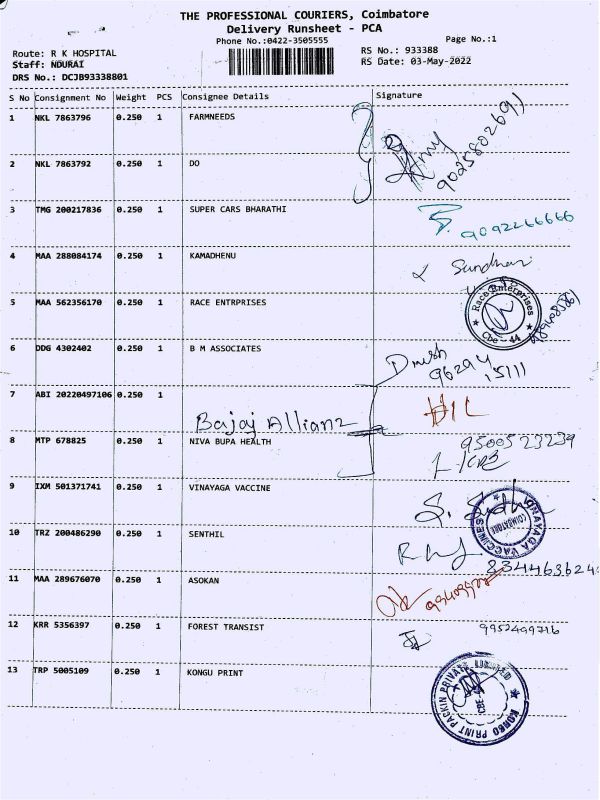 THE PROFESSIONAL COURIERS, Coimbatore
Delivery Runsheet - PCA
Phone No.:0422-3505555
Page No.:1
Route: R K HOSPITAL
RS No.: 933388
Staff: NDURAI
RS Date: 03-May-2022
DRS No.: DCJB93338801
S No Consignment No Weight PCS Consignee Details Signature
1 NKL 7863796 0.250 1 FARMNEEDS
9025802691
2 NKL 7863792 0.250 1 DO
3 TMG 200217836 0.250 1 SUPER CARS BHARATHI
9092266666
4 MAA 288084174 0.250 1 KAMADHENU
Sundhari
5 MAA 562356170 0.250 1 RACE ENTRPRISES
Race Enterprises
Cbe - 44
6 DDG 4302402 0.250 1 B M ASSOCIATES
Dinesh
96294
15111
7 ABI 20220497106 0.250 1
Bajaj Allianz
8 MTP 678825 0.250 1 NIVA BUPA HEALTH
9500523239
9 IXM 501371741 0.250 1 VINAYAGA VACCINE
VINAYAGA VACCINES
COIMBATORE
10 TRZ 200486290 0.250 1 SENTHIL
834463624
11 MAA 289676070 0.250 1 ASOKAN
12 KRR 5356397 0.250 1 FOREST TRANSIST
9952499716
13 TRP 5005109 0.250 1 KONGU PRINT
KONGO PRINT PACKIN PRIVATE LIMITED
CBE